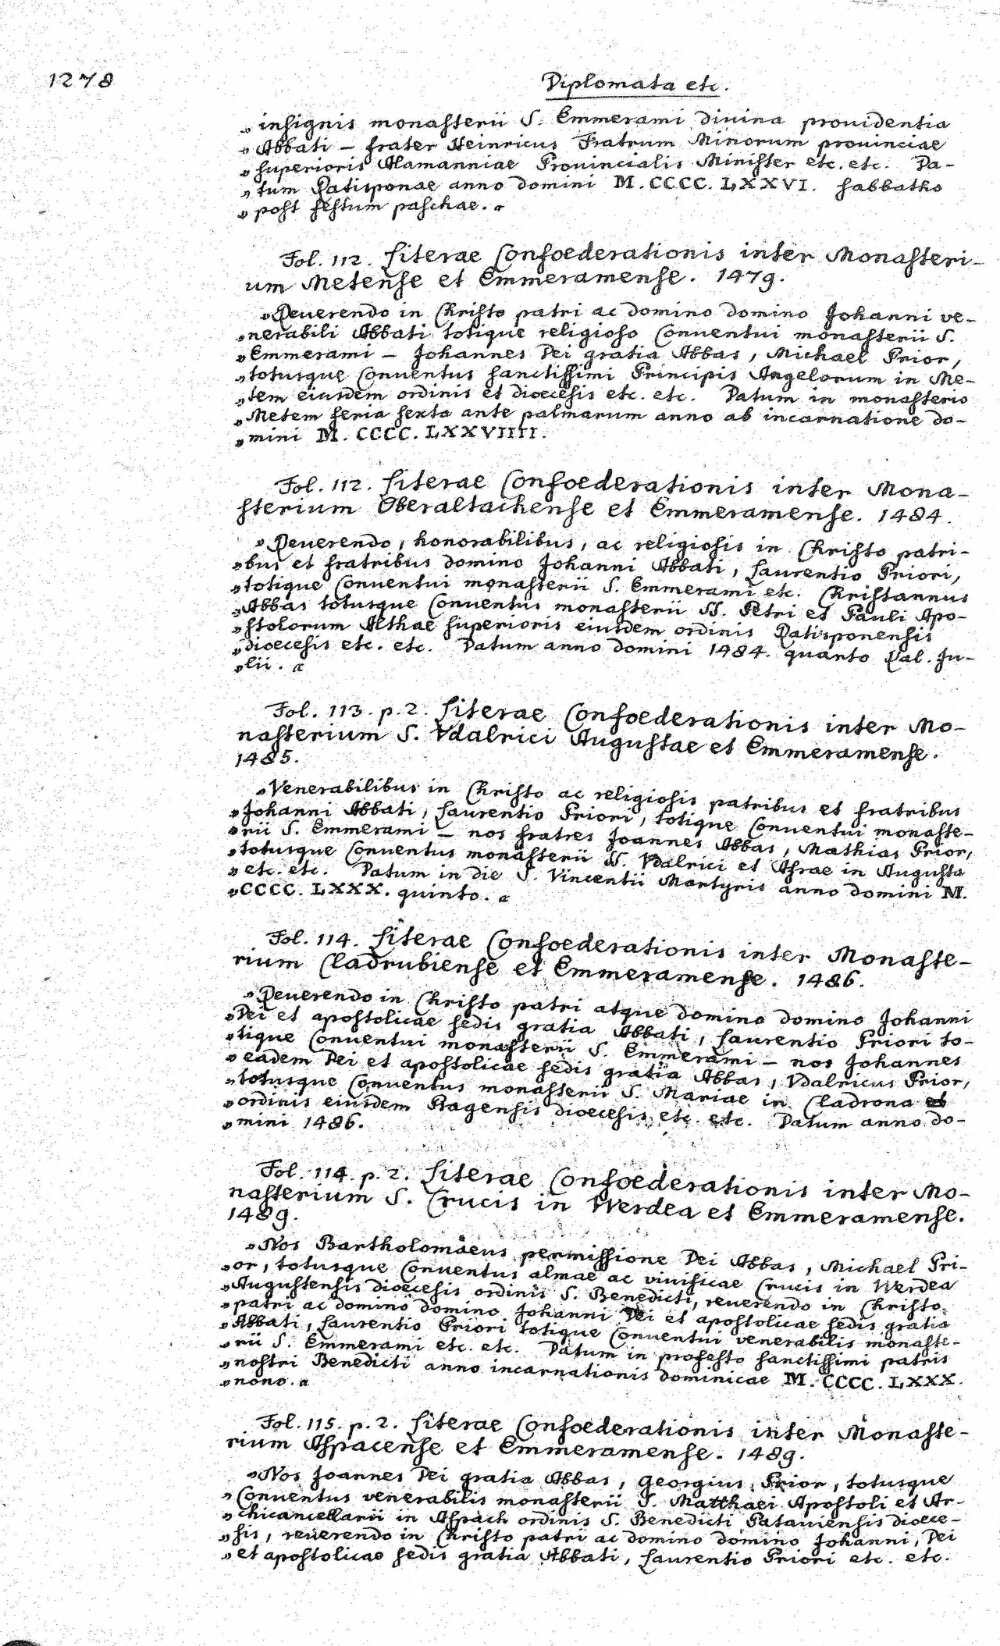 1278
Diplomata etc.
„ insignis monasterii S. Emmerami divina prouidentia
„ Abbati – frater Heinricus Fratrum Minorum prouinciae
„ superioris Alamanniae Prouincialis Minister etc. etc. Da-
„ tum Ratisponae anno domini M. CCCC. LXXVI. sabbatho
„ post festum paschae. “
Fol. 112. Literae Confoederationis inter Monasteri-
um Metense et Emmeramense. 1479.
„ Reuerendo in Christo patri ac domino domino Johanni ve-
„ nerabili Abbati totique religioso Conuentui monasterii S.
„ Emmerami – Johannes Dei gratia Abbas, Michael Prior,
„ totusque Conuentus sanctissimi Principis Angelorum in Me-
„ tem eiusdem ordinis et dioecesis etc. etc. Datum in monasterio
„ Metem feria sexta ante palmarum anno ab incarnatione do-
„ mini M. CCCC. LXXVIIII.
Fol. 112. Literae Confoederationis inter Mona-
sterium Oberaltachense et Emmeramense. 1484.
„ Reuerendo, honorabilibus, ac religiosis in Christo patri-
„ bus et fratribus domino Johanni Abbati, Laurentio Priori,
„ totique Conuentui monasterii S. Emmerami etc. Christannus
„ Abbas totusque Conuentus monasterii SS. Petri et Pauli Apo-
„ stolorum Althae superioris eiusdem ordinis Ratisponensis
„ dioecesis etc. etc. Datum anno domini 1484. quanto Kal. Ju-
„ lii. “
Fol. 113. p. 2. Literae Confoederationis inter Mo-
nasterium S. Vdalrici Augustae et Emmeramense.
1485.
„ Venerabilibus in Christo ac religiosis patribus et fratribus
„ Johanni Abbati, Laurentio Priori, totique Conuentui monaste-
„ rii S. Emmerami – nos fratres Joannes Abbas, Mathias Prior,
„ totusque Conuentus monasterii SS. Vdalrici et Afrae in Augusta
„ etc. etc. Datum in die S. Vincentii Martyris anno domini M.
„ CCCC. LXXX. quinto. “
Fol. 114. Literae Confoederationis inter Monaste-
rium Cladrubiense et Emmeramense. 1486.
„ Reuerendo in Christo patri atque domino domino Johanni
„ Dei et apostolicae sedis gratia Abbati, Laurentio Priori to-
„ tique Conuentui monasterii S. Emmerami – nos Johannes
„ eadem Dei et apostolicae sedis gratia Abbas, Vdalricus Prior,
„ totusque Conuentus monasterii S. Mariae in Cladrona
„ ordinis eiusdem Pragensis dioecesis etc. etc. Datum anno do-
„ mini 1486.
Fol. 114. p. 2. Literae Confoederationis inter Mo-
nasterium S. Crucis in Werdea et Emmeramense.
1489.
„ Nos Bartholomaeus permissione Dei Abbas, Michael Pri-
„ or, totusque Conuentus almae ac viuificae Crucis in Werdea
„ Augustensis dioecesis ordinis S. Benedicti, reuerendo in Christo
„ patri ac domino domino Johanni Dei et apostolicae sedis gratia
„ Abbati, Laurentio Priori totique Conuentui venerabilis monaste-
„ rii S. Emmerami etc. etc. Datum in profesto sanctissimi patris
„ nostri Benedicti anno incarnationis dominicae M. CCCC. LXXX.
„ nono. “
Fol. 115. p. 2. Literae Confoederationis inter Monaste-
rium Aspacense et Emmeramense. 1489.
„ Nos Joannes Dei gratia Abbas, Georgius Prior, totusque
„ Conuentus venerabilis monasterii S. Matthaei Apostoli et Ar-
„ chicancellarii in Aspach ordinis S. Benedicti Patauiensis dioece-
„ sis, reuerendo in Christo patri ac domino domino Johanni, Dei
„ et apostolicae sedis gratia Abbati, Laurentio Priori etc. etc.